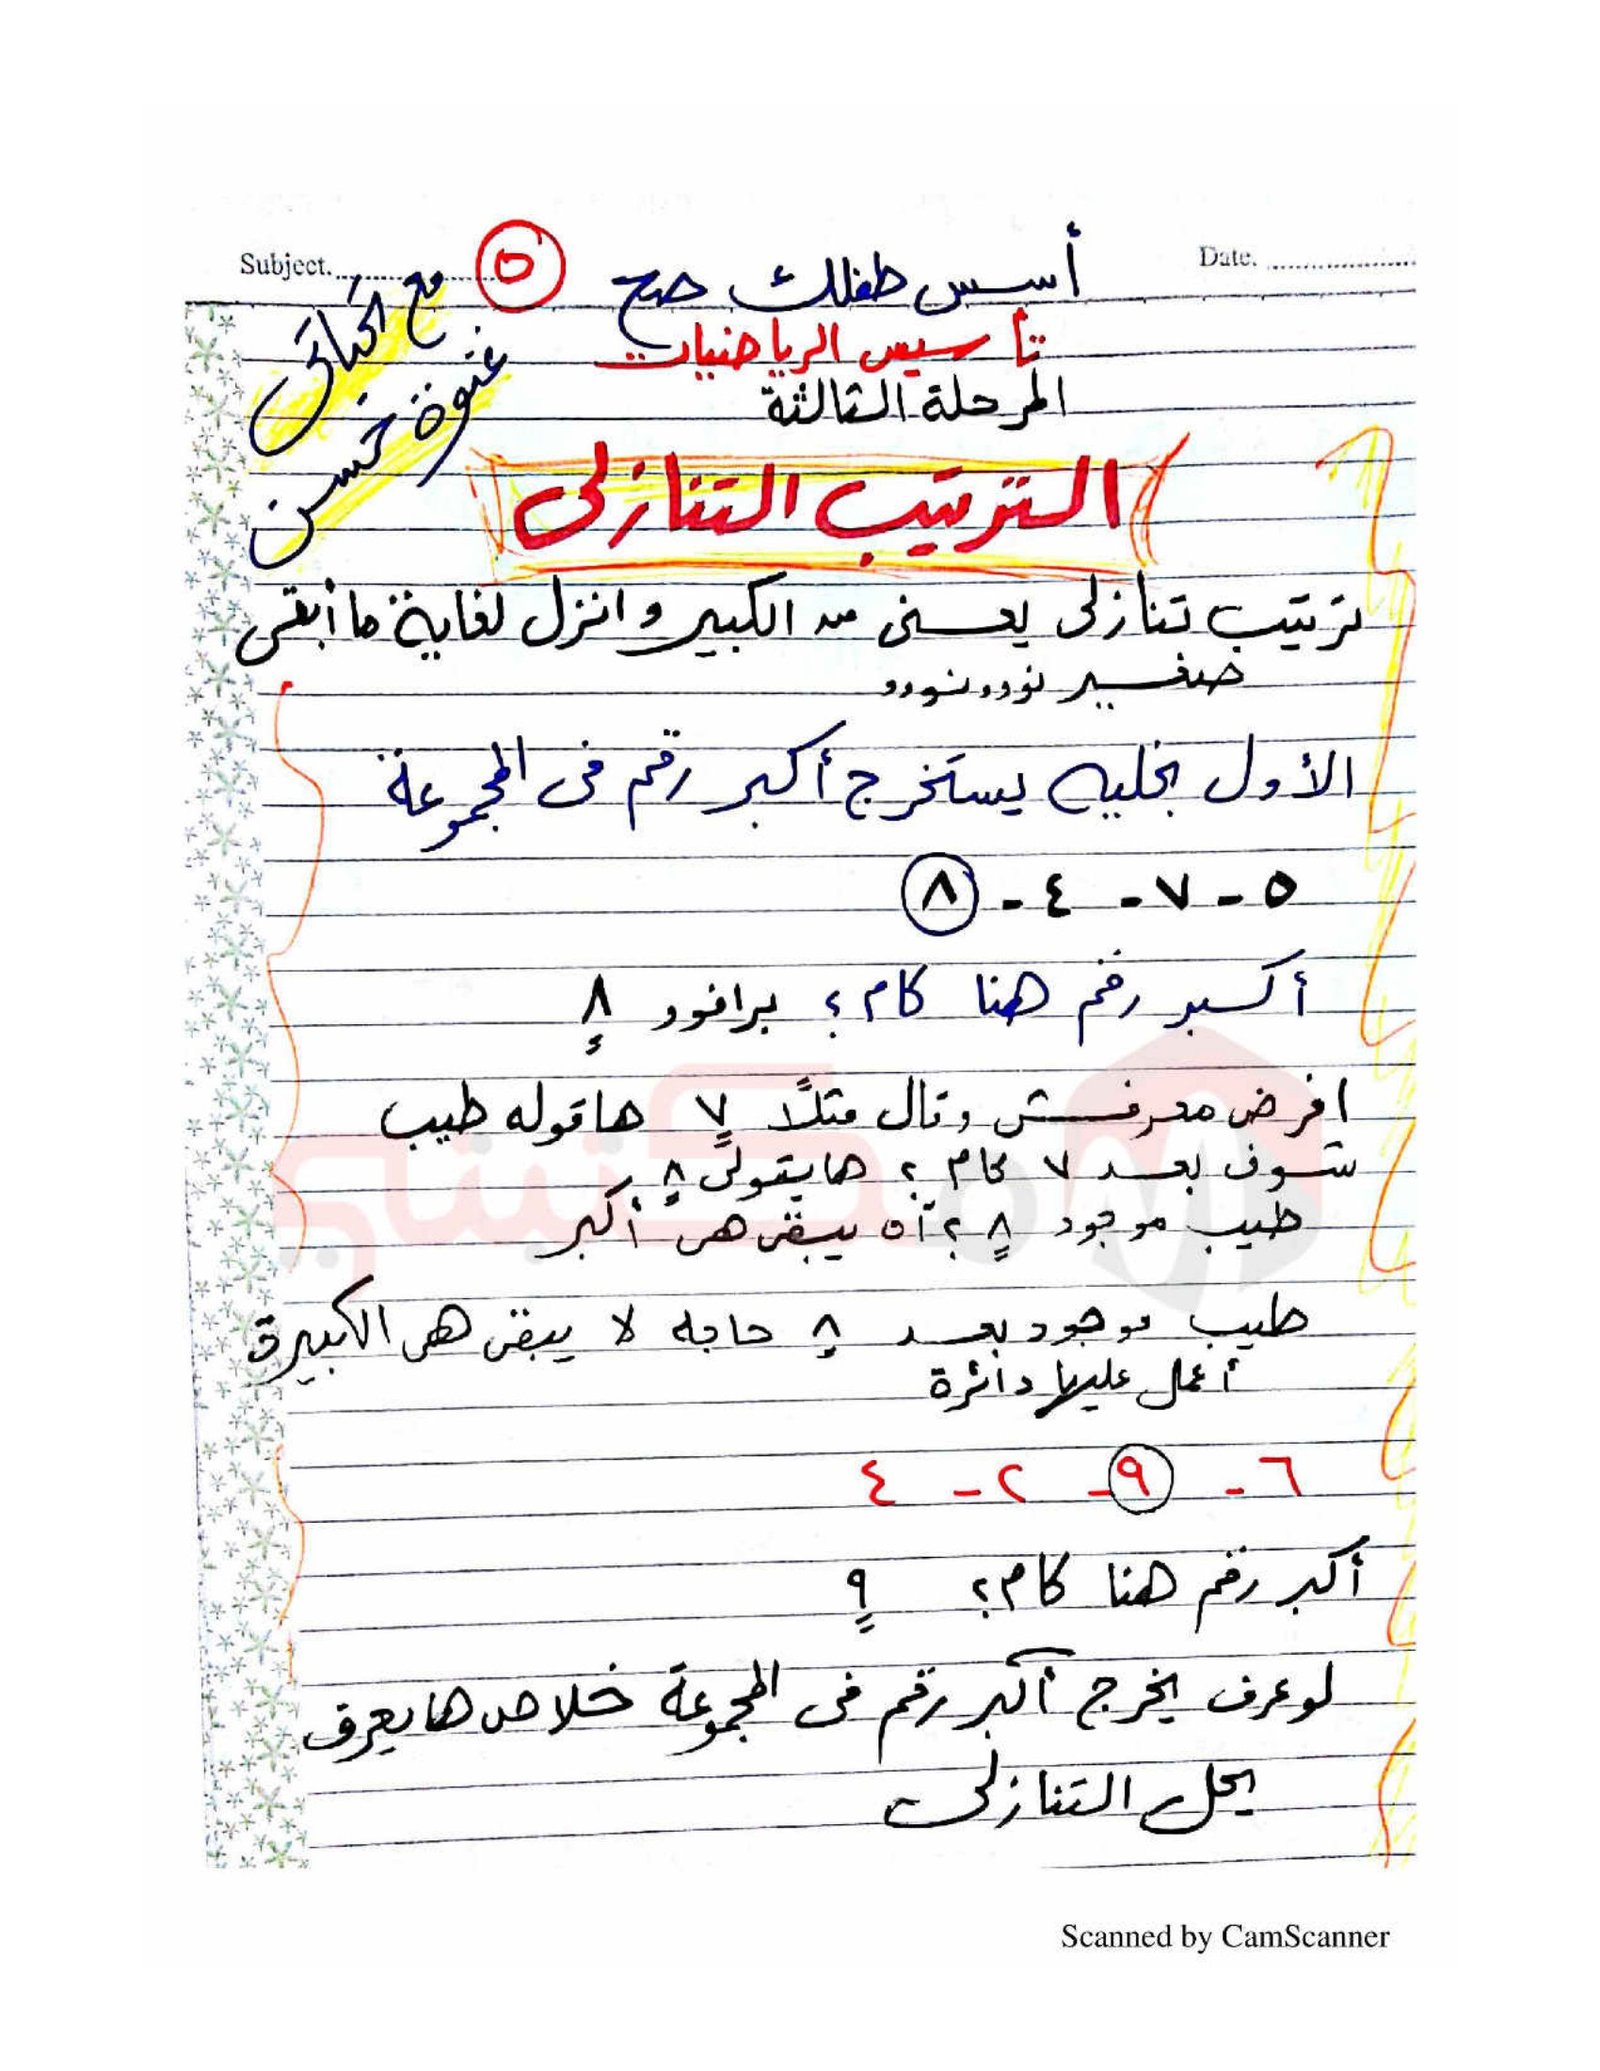 Subject.
٥
أسس طفلك صح
Date.
تأسيس الرياضيات
المرحلة الثالثة
مع
غنوة حسن
الترتيب التنازلى
ترتيب تنازلى يعنى من الكبير وانزل لغاية ما أبقى
صغير نوووو نوووو
الأول بخليه يستخرج أكبر رقم فى المجموعة
٥ - ٧ - ٤ - ٨
أكبر رقم هنا كام؟ برافوو ٨
افرض معرفش وقال مثلاً ٧ هاقوله طيب
شوف بعد ٧ كام؟ هايقولى ٨
طيب موجود ٨؟ آه يبقى هى أكبر
طيب موجود بعد ٨ حاجه لا يبقى هى الكبيرة
أعمل عليها دائرة
٦ - ٩ - ٢ - ٤
أكبر رقم هنا كام؟ ٩
لو عرف يخرج أكبر رقم فى المجموعة خلاص هايعرف
يحل التنازلى
مكتبتي
Scanned by CamScanner